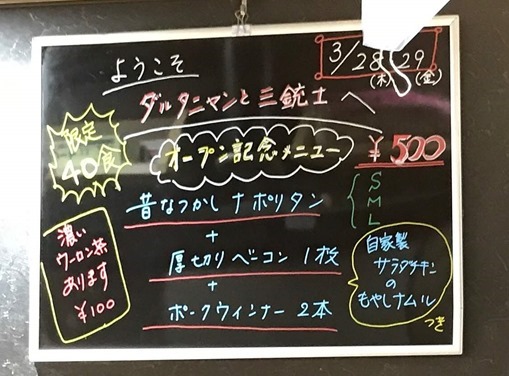 3/28 29
(木) (金)
ようこそ
ダルタニャンと三銃士へ
限定
40食
オープン記念メニュー
¥500
S
M
L
昔なつかしナポリタン
+
厚切りベーコン 1枚
+
ポークウィンナー 2本
濃い
ウーロン茶
あります
¥100
自家製
サラダチキン
の
もやしナムル
つき